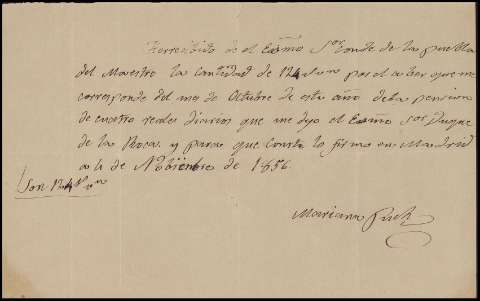 He recibido de el Exmo Sor Conde de la puebla
del Maestre la cantidad de 124 rs vn por el aber que me
corresponde del mes de Octubre de este año de la pension
de cuatro reales diarios que me dejo el Exmo Sor Duque
de las Rocas. y para que conste lo firmo en Madrid
a 4 de Nobiembre de 1856.
Son 124 rs vn
Mariana